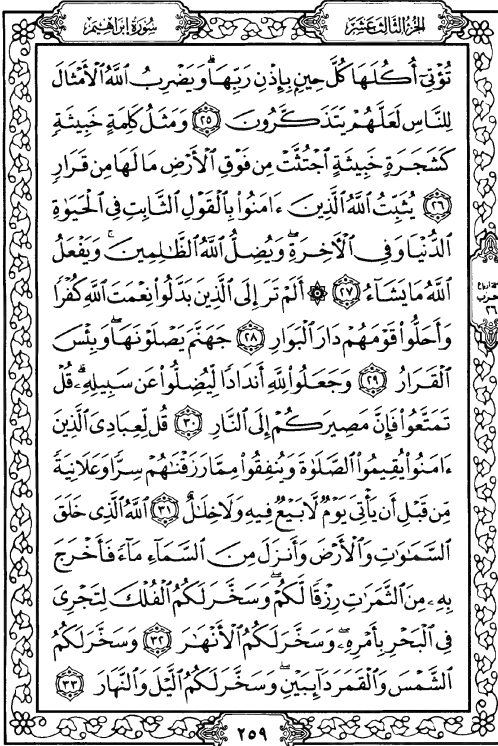 الجزء الثالث عشر
سورة إبراهيم
تُؤْتِىٓ أُكُلَهَا كُلَّ حِينٍۭ بِإِذْنِ رَبِّهَاۗ وَيَضْرِبُ ٱللَّهُ ٱلْأَمْثَالَ
لِلنَّاسِ لَعَلَّهُمْ يَتَذَكَّرُونَ ٢٥ وَمَثَلُ كَلِمَةٍ خَبِيثَةٍ
كَشَجَرَةٍ خَبِيثَةٍ ٱجْتُثَّتْ مِن فَوْقِ ٱلْأَرْضِ مَا لَهَا مِن قَرَارٍ
٢٦ يُثَبِّتُ ٱللَّهُ ٱلَّذِينَ ءَامَنُوا۟ بِٱلْقَوْلِ ٱلثَّابِتِ فِى ٱلْحَيَوٰةِ
ٱلدُّنْيَا وَفِى ٱلْـَٔاخِرَةِۖ وَيُضِلُّ ٱللَّهُ ٱلظَّـٰلِمِينَۚ وَيَفْعَلُ
ٱللَّهُ مَا يَشَآءُ ٢٧ ۞ أَلَمْ تَرَ إِلَى ٱلَّذِينَ بَدَّلُوا۟ نِعْمَتَ ٱللَّهِ كُفْرًا
وَأَحَلُّوا۟ قَوْمَهُمْ دَارَ ٱلْبَوَارِ ٢٨ جَهَنَّمَ يَصْلَوْنَهَاۖ وَبِئْسَ
ٱلْقَرَارُ ٢٩ وَجَعَلُوا۟ لِلَّهِ أَندَادًا لِّيُضِلُّوا۟ عَن سَبِيلِهِۦۗ قُلْ
تَمَتَّعُوا۟ فَإِنَّ مَصِيرَكُمْ إِلَى ٱلنَّارِ ٣٠ قُل لِّعِبَادِىَ ٱلَّذِينَ
ءَامَنُوا۟ يُقِيمُوا۟ ٱلصَّلَوٰةَ وَيُنفِقُوا۟ مِمَّا رَزَقْنَـٰهُمْ سِرًّا وَعَلَانِيَةً
مِّن قَبْلِ أَن يَأْتِىَ يَوْمٌ لَّا بَيْعٌ فِيهِ وَلَا خِلَـٰلٌ ٣١ ٱللَّهُ ٱلَّذِى خَلَقَ
ٱلسَّمَـٰوَٰتِ وَٱلْأَرْضَ وَأَنزَلَ مِنَ ٱلسَّمَآءِ مَآءً فَأَخْرَجَ
بِهِۦ مِنَ ٱلثَّمَرَٰتِ رِزْقًا لَّكُمْۖ وَسَخَّرَ لَكُمُ ٱلْفُلْكَ لِتَجْرِىَ
فِى ٱلْبَحْرِ بِأَمْرِهِۦۖ وَسَخَّرَ لَكُمُ ٱلْأَنْهَـٰرَ ٣٢ وَسَخَّرَ لَكُمُ
ٱلشَّمْسَ وَٱلْقَمَرَ دَآئِبَيْنِۖ وَسَخَّرَ لَكُمُ ٱلَّيْلَ وَٱلنَّهَارَ ٣٣
٢٥٩